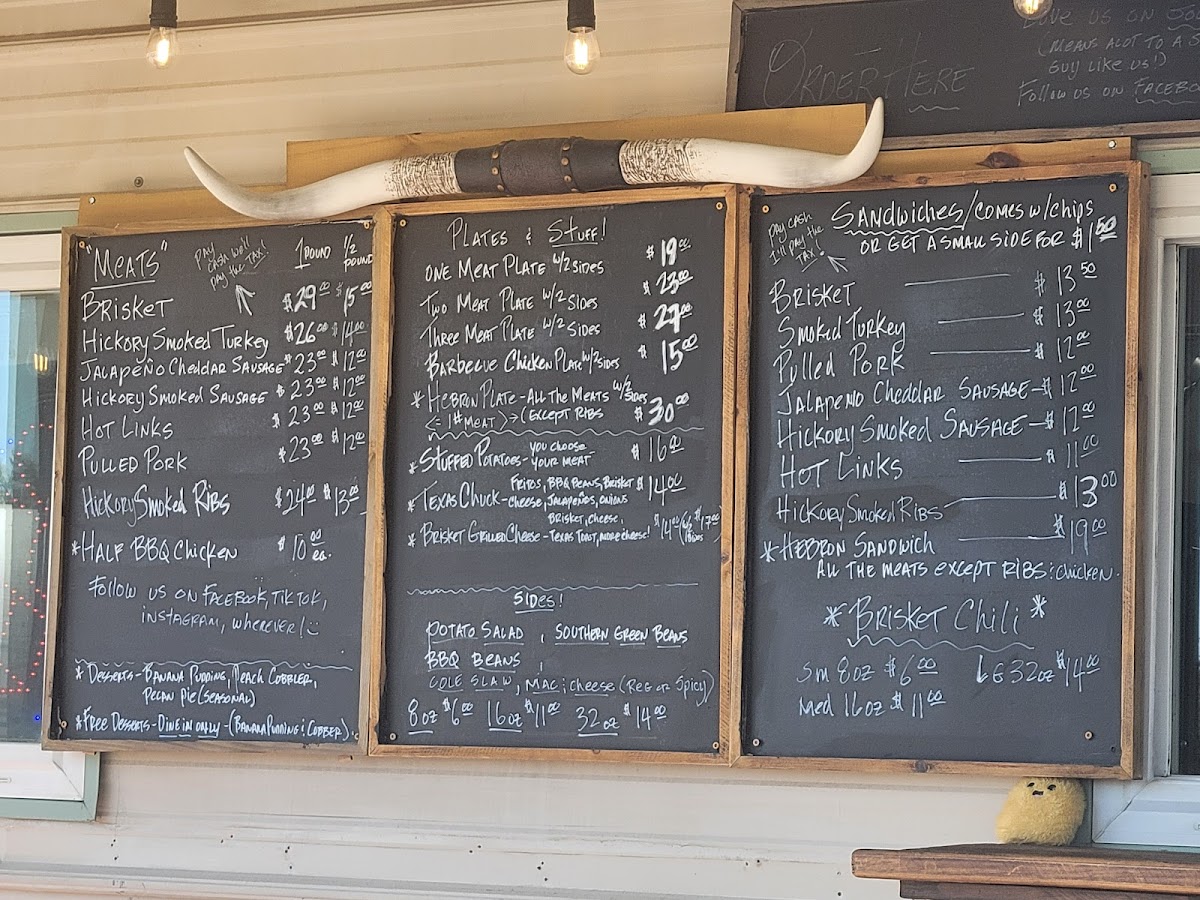 ORDER HERE
LOVE US ON
(MEANS ALOT TO A S
GUY LIKE US!)
FOLLOW US ON FACEBO
"MEATS"
PAY
CASH WE'LL
PAY THE TAX!
1 POUND
1/2 POUND
BRISKET $29.00 $15.00
HICKORY SMOKED TURKEY $26.00 $14.00
JALAPEÑO CHEDDAR SAUSAGE $23.00 $12.00
HICKORY SMOKED SAUSAGE $23.00 $12.00
HOT LINKS $23.00 $12.00
PULLED PORK $23.00 $12.00
HICKORY SMOKED RIBS $24.00 $13.00
*HALF BBQ CHICKEN $10.00 ea.
FOLLOW US ON FACEBOOK, TIKTOK,
INSTAGRAM, WHEREVER!
* DESSERTS - BANANA PUDDING, PEACH COBBLER,
PECAN PIE (SEASONAL)
*FREE DESSERTS - DINE IN ONLY - (BANANA PUDDING & COBBER)
PLATES & STUFF!
ONE MEAT PLATE W/2 SIDES $19.00
TWO MEAT PLATE W/2 SIDES $23.00
THREE MEAT PLATE W/2 SIDES $27.00
BARBECUE CHICKEN PLATE W/2 SIDES $15.00
* HEBRON PLATE - ALL THE MEATS W/2 SIDES
<= 1# MEAT) → (EXCEPT RIBS $30.00
* STUFFED POTATOES - YOU CHOOSE YOUR MEAT $16.00
* TEXAS CHUCK - FRITOS, BBQ BEANS, BRISKET $14.00
CHEESE, JALAPEÑOS, ONIONS
* BRISKET GRILLED CHEESE - BRISKET, CHEESE, TEXAS TOAST, MORE CHEESE! $14.00 $17.00
SIDES!
POTATO SALAD, SOUTHERN GREEN BEANS
BBQ BEANS,
COLE SLAW, MAC & CHEESE (REG OR SPICY)
8 OZ $6.00 16 OZ $11.00 32 OZ $14.00
PAY CASH
I'LL PAY THE
TAX!
SANDWICHES/COMES W/CHIPS
OR GET A SMALL SIDE FOR $1.50
BRISKET $13.50
SMOKED TURKEY $13.00
PULLED PORK $12.00
JALAPENO CHEDDAR SAUSAGE - $12.00
HICKORY SMOKED SAUSAGE - $12.00
HOT LINKS $11.00
HICKORY SMOKED RIBS $13.00
*HEBRON SANDWICH $19.00
ALL THE MEATS EXCEPT RIBS & CHICKEN.
*BRISKET CHILI*
SM 8 OZ $6.00 LG 32 OZ $14.00
MED 16 OZ $11.00